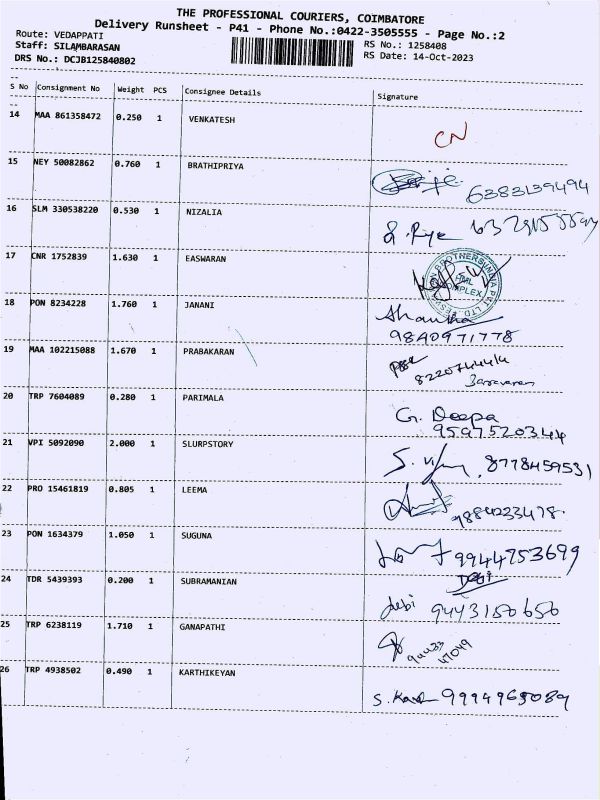 THE PROFESSIONAL COURIERS, COIMBATORE
Delivery Runsheet - P41 - Phone No.:0422-3505555 - Page No.:2
Route: VEDAPPATI
Staff: SILAMBARASAN
DRS No.: DCJB125840802
RS No.: 1258408
RS Date: 14-Oct-2023
S No Consignment No Weight PCS Consignee Details Signature
14 MAA 861358472 0.250 1 VENKATESH CN
15 NEY 50082862 0.760 1 BRATHIPRIYA 6383139494
16 SLM 330538220 0.530 1 NIZALIA
17 CNR 1752839 1.630 1 EASWARAN
18 PON 8234228 1.760 1 JANANI Shantha
9840971778
19 MAA 102215088 1.670 1 PRABAKARAN
20 TRP 7604089 0.280 1 PARIMALA G. Deepa
9597520344
21 VPI 5092090 2.000 1 SLURPSTORY 8778459531
22 PRO 15461819 0.805 1 LEEMA 9884233478
23 PON 1634379 1.050 1 SUGUNA 9944753699
24 TDR 5439393 0.200 1 SUBRAMANIAN Debi
debi 9443150650
25 TRP 6238119 1.710 1 GANAPATHI
26 TRP 4938502 0.490 1 KARTHIKEYAN 9994965089